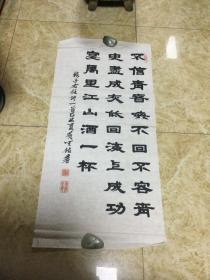 不信青春喚不回不容青
史盡成灰低回海上成功
宴萬里江山酒一杯
于右任詩一首